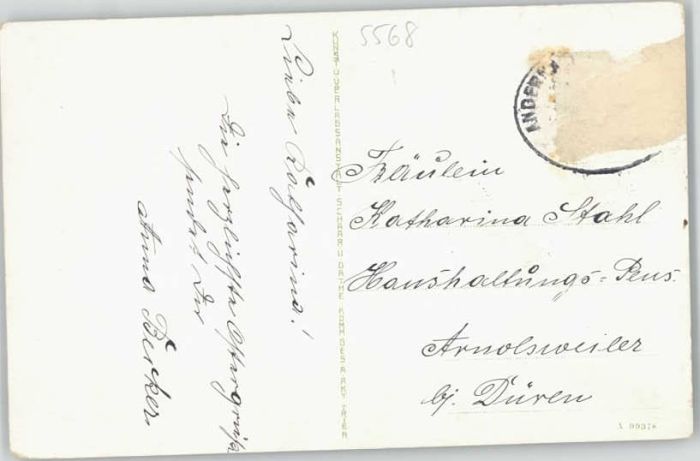 5568
Liebe Katharina!
Die herzlichste Ostergrüße
sendet Dir
Anna Becker
KUNST U. VERLAGSANSTALT SCHAAR U. DATHE KOMM. GES. A. AKT. TRIER
ANDER
Fräulein
Katharina Stahl
Haushaltungs=Pens.
Arnolsweiler
bj. Düren